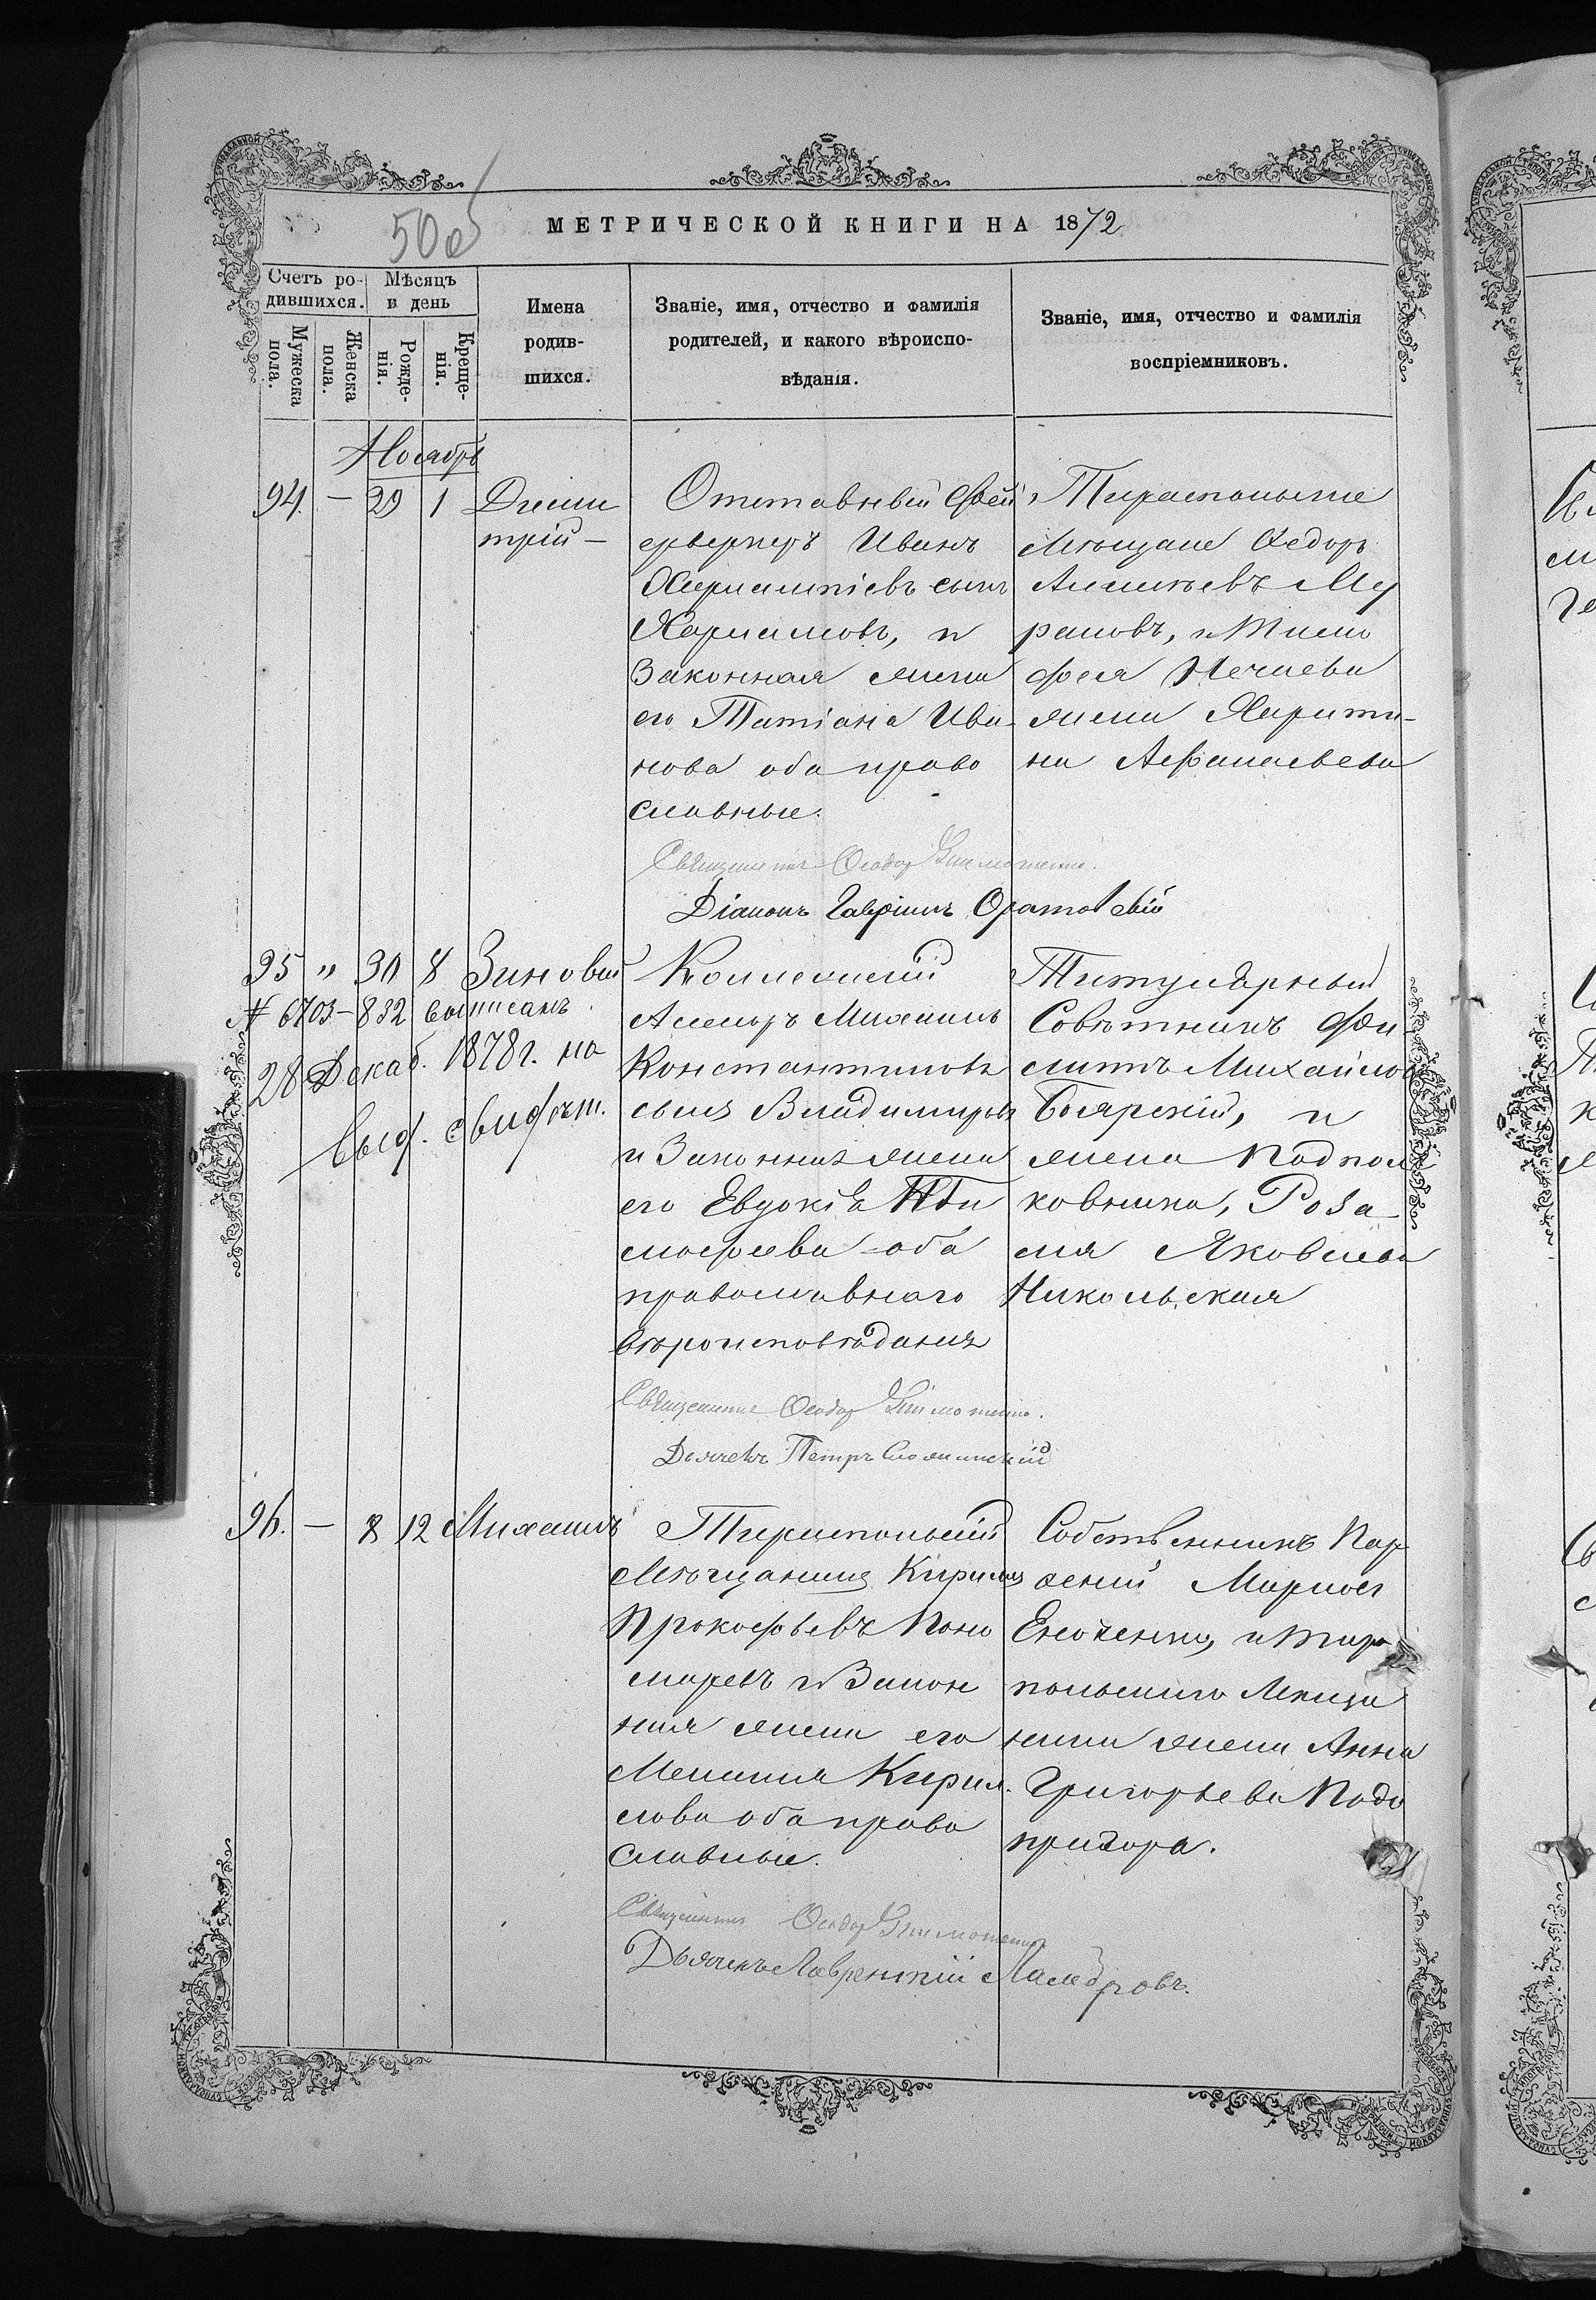 50об
МЕТРИЧЕСКОЙ КНИГИ НА 1872
Счетъ ро-
дившихся.
Мѣсяцъ
и день
Мужеска
пола.
Женска
пола.
Рожде-
нія.
Креще-
нія.
Имена
родив-
шихся.
Званіе, имя, отчество и фамилія
родителей, и какого вѣроиспо-
вѣданія.
Званіе, имя, отчество и фамилія
воспріемниковъ.
Ноябрь
94. — 29 1 Дими
трій —
Отставный Фей
ерверкеръ Иванъ
сынъ
Харламовъ, и
Законная жена
его Татіана Ива-
нова оба право
славные.
Тираспольские
Мѣщане Федоръ
Му
рановъ, и Тимо
фея Нечаева
жена Харити-
на Афанасьева
Священникъ Феодор
Діаконъ Гавріилъ
95 " 30 8 Зиновий
№ 6703 – 832 выписанъ
28 Декаб. 1878 г. на
выд. свидѣт.
Коллежскій
Асессоръ Михаилъ
Константиновъ
сынъ Владимировъ
и Законная жена
его Евдокія Ти
мофеева оба
православнаго
вѣроисповѣдания
Титулярный
Совѣтникъ Фи
липпъ Михайловъ
Боярскій, и
жена Подпол
ковника, Роза
лия Яковлева
Никольская
Священникъ Феодор
Дьячекъ Петръ
96. — 8 12 Михаилъ
Тираспольскій
Мѣщанинъ Кирилъ
Прокофьевъ Поно
маревъ и Закон
ная жена его
Мелания Кирил
лова оба право
славные.
Собственникъ Пар
фений Марков
и Тирас
польскаго Мѣща
нина жена Анна
Григорьева Подо
пригора.
Священникъ Феодор
Дьячекъ Лаврентій